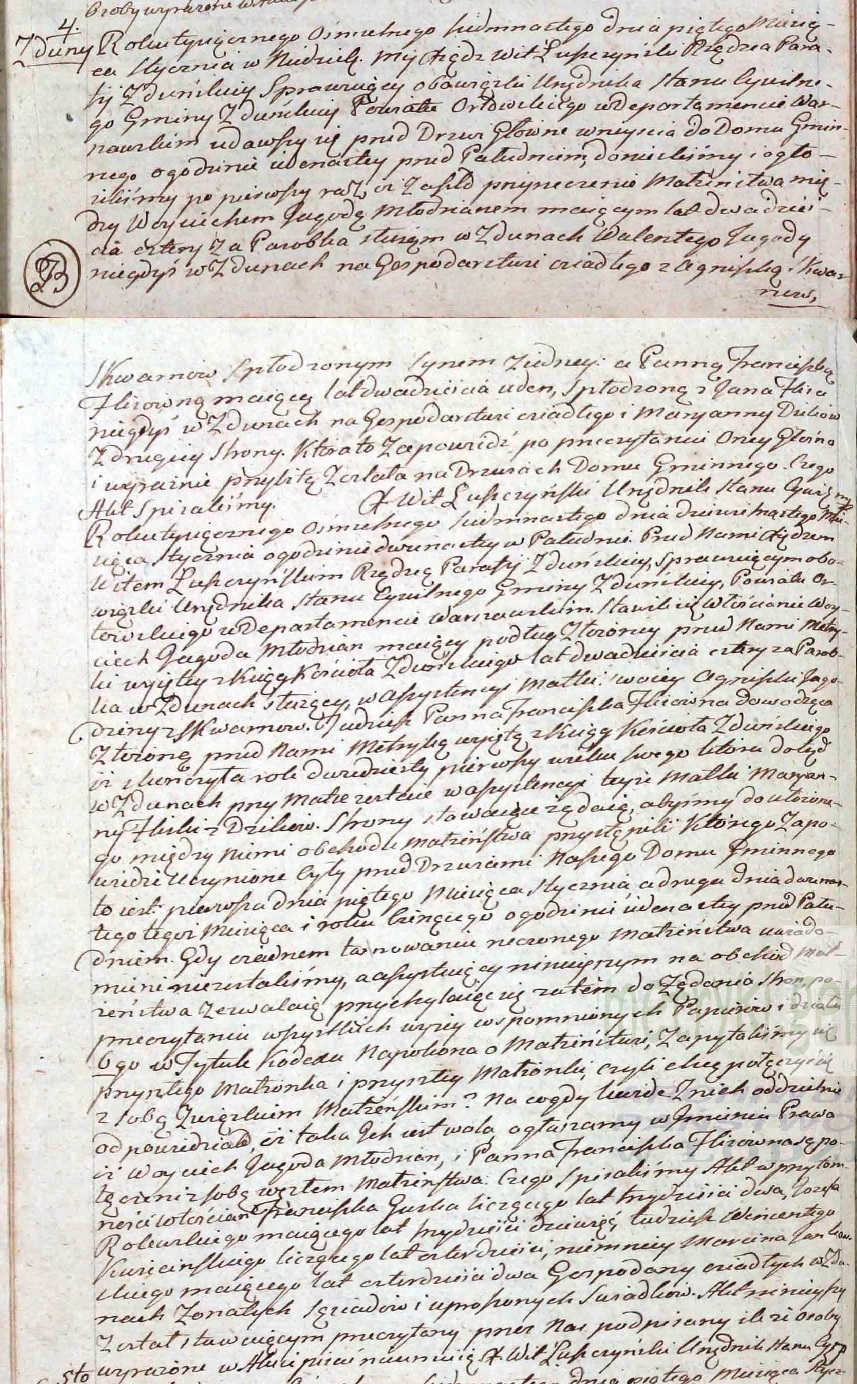 Osoby wyrażone w
4.
Zduny
Roku tysiącznego Osmsetnego siedmnastego dnia piątego Miesią-
ca Stycznia w Niedzielę. My Xiądz Wit Łupczyński Rządca Para-
fij Zduńskiey Sprawuiący obowiązki Urzędnika Stanu Cywilne-
go Gminy Zduńskiey Powiatu Orłowskiego w Departamencie War-
szawskim udawszy się przed Drzwi Główne weyścia do Domu Gmin-
nego o godzinie iedenastey przed Południem, donieśliśmy i ogło-
siliśmy po pierwszy raz, iż zaszło przyrzeczenie Małżeństwa mię-
dzy Woyciechem Jagodą Młodzianem maiącym lat dwadzieś-
cia cztery za Parobka służącym w Zdunach Walentego Jagody
niegdyś w Zdunach na Gospodarstwie osiadłego z Agnieszką Skwar-
nów,
B
Skwarnów spłodzonym Synem z iedney: a Panną Franciszką
Flisowną maiącą lat dwadzieścia ieden, spłodzoną z Jana Flisa
niegdyś w Zdunach na Gospodarstwie osiadłego i Maryanny Dzików
z drugiey Strony. Która to Zapowiedź po przeczytaniu Oney Głośno
i wyraźnie przybitą została na Drzwiach Domu Gminnego. Czego
Akt Spisaliśmy. X Wit Łupczyński Urzędnik Stanu Cywilnego
Roku tysiącznego Osmsetnego siedmnastego dnia dziewiętnastego Mie-
siąca Stycznia o godzinie dwunastey w Południe. Przed Nami Xiędzem
Witem Łupczyńskim Rządcą Parafij Zduńskiey, Sprawuiącym obo-
wiązki Urzędnika Stanu Cywilnego Gminy Zduńskiey, Powiatu Or-
łowskiego w Departamencie Warszawskim. Stawili się Włościanie Woy-
ciech Jagoda Młodzian maiący podług złożoney przed Nami Metry-
ki wyiętey z Xiąg Kościoła Zduńskiego lat dwadzieścia cztery za Parob-
ka w Zdunach służący, w asystencyi Matki swoiey Agnieszki Jago-
dziny z Skwarnów. Tudzież Panna Franciszka Flisowna dowodząca
złożoną przed Nami Metryką wyiętą z Xiąg Kościoła Zduńskiego
iż skończyła rok dwudziesty pierwszy wieku swego która dotąd
w Zdunach przy Matce zostaie w asystencyi teyże Matki Maryan-
ny Fliski z Dzików. Strony stawaiące żądaią, abyśmy do ułożone-
go między niemi obchodu Małżeństwa przystąpili którego Zapo-
wiedzie uczynione były przed Drzwiami Naszego Domu Gminnego
to iest: pierwsza dnia piątego Miesiąca Stycznia, a druga dnia dwunas-
tego tegoż Miesiąca i roku bieżącego o godzinie iedenastey przed Połu-
dniem. Gdy o żadnem tamowaniu rzeczonego Małżeństwa uwiado-
mieni niezostaliśmy, a asystuiący ninieyszym na obchód Mał-
żeństwa zezwalaią przychylaiąc się zatem do Żądania Stron, po
przeczytaniu wszystkich wyżey wspomnionych Papierów i działu
6go w Tytule Kodexu Napoleona o Małżeństwie, Zapytaliśmy się
przyszłego Małżonka i przyszłey Małżonki, czyli chcą połączyć się
z sobą Związkiem Małżeńskim? Na co gdy każde z nich oddzielnie
odpowiedziało, iż taka Ich iest wola, ogłaszamy w Imieniu Prawa
iż Woyciech Jagoda Młodzian, i Panna Franciszka Flisowna są po-
łączeni z sobą węzłem Małżeństwa. Czego Spisaliśmy Akt w przytom-
ności Włościan Franciszka Guzka liczącego lat trzydzieści dwa, Józefa
Rolewskiego maiącego lat trzydzieści dziewięć, tudzież Wincentego
liczącego lat czterdzieści, niemniey Marcina
maiącego lat czterdzieści dwa Gospodarzy osiadłych w Zdu-
nach Żonatych Sąsiadów i uproszonych Świadków. Akt ninieyszy
został stawaiącym przeczytany przez Nas podpisany ile że Osoby
wyrażone w Akcie pisać nieumieią X Wit Łupczyński Urzędnik Stanu Cyw
5to
dnia piątego Miesiąca Stycz-